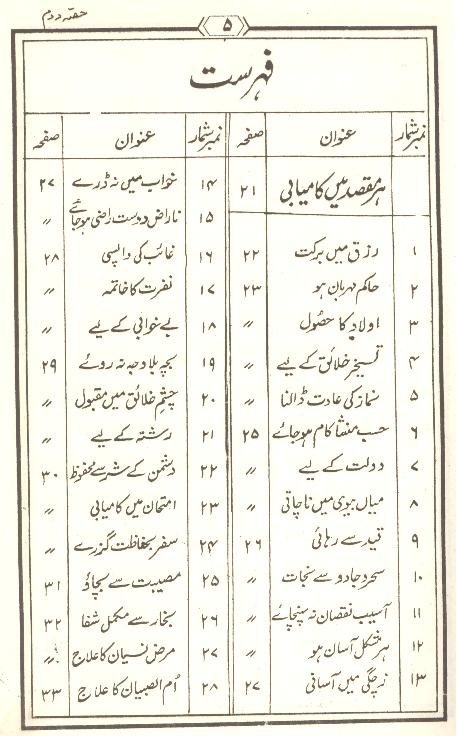 حصہ دوم
۵
فہرست
نمبر شمار عنوان صفحہ
ہر مقصد میں کامیابی ۲۱
۱ رزق میں برکت ۲۲
۲ حاکم مہربان ہو ۲۳
۳ اولاد کا حصُول 〃
۴ تسخیر خلائق کے لیے 〃
۵ نماز کی عادت ڈالنا 〃
۶ حسب منشا کام ہو جائے ۲۵
۷ دولت کے لیے 〃
۸ میاں بیوی میں ناچاتی 〃
۹ قید سے رہائی ۲۶
۱۰ سحر و جادو سے نجات 〃
۱۱ آسیب نقصان نہ پہنچائے 〃
۱۲ ہر مشکل آسان ہو 〃
۱۳ زچگی میں آسانی ۲۷
نمبر شمار عنوان صفحہ
۱۴ خواب میں نہ ڈرے ۲۷
۱۵ ناراض دوست راضی ہو جائے 〃
۱۶ غائب کی واپسی ۲۸
۱۷ نفرت کا خاتمہ 〃
۱۸ بے خوابی کے لیے 〃
۱۹ بچہ بلا وجہ نہ روئے ۲۹
۲۰ چشمِ خلائق میں مقبول 〃
۲۱ رشتہ کے لیے 〃
۲۲ دشمن کے شر سے محفوظ ۳۰
۲۳ امتحان میں کامیابی 〃
۲۴ سفر بحفاظت گزرے 〃
۲۵ مصیبت سے بچاؤ ۳۱
۲۶ بخار سے مکمل شفا ۳۲
۲۷ مرض نسیان کا علاج 〃
۲۸ اُم الصبیان کا علاج ۳۳